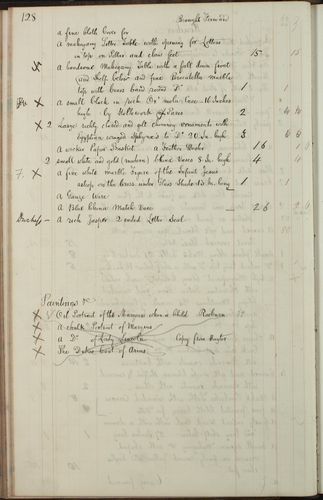 128
Brought Forward
a fine Cloth Cover for
a mahogany Letter Table with opening for Letters
in top on Pillar and claw feet 15 15
x a handsome Mahogany Table with a fall down front
and Shelf below and fine marble
top with brass band round Do 1 1
x a small black in rich Or molu Case 16 Inches
high by 2
x 2 Large richly chased and gilt chimney ornaments with
Egyptian winged Sphynx's to Do 20 In. high 3
a wicker Paper Basket a Feather Duster 16
2 small white and gold (modern) China Vases 8 In. high 4 4
F. x a fine white marble figure of the Infant Jesus
asleep on the Cross under Glass Shade 15 In. long 1 1
a Gauze Wire
a Blue China Match Vase 2 6 2 6
a rich Jasper 2 ended Letter Seal
Paintings &c
x Oil Portrait of the Marquess when a Child Raeburn
x a chalk Portrait of Marquess
x a Do of Lady Lincoln Copy from
x The Dukes Coat of Arms